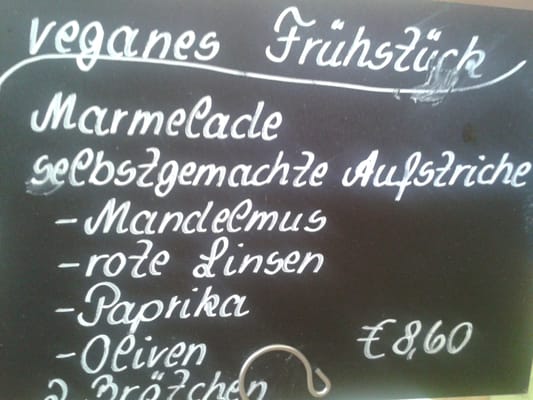 veganes Frühstück
Marmelade
selbstgemachte Aufstriche
- Mandelmus
- rote Linsen
- Paprika
- Oliven €8,60
2 Brötchen